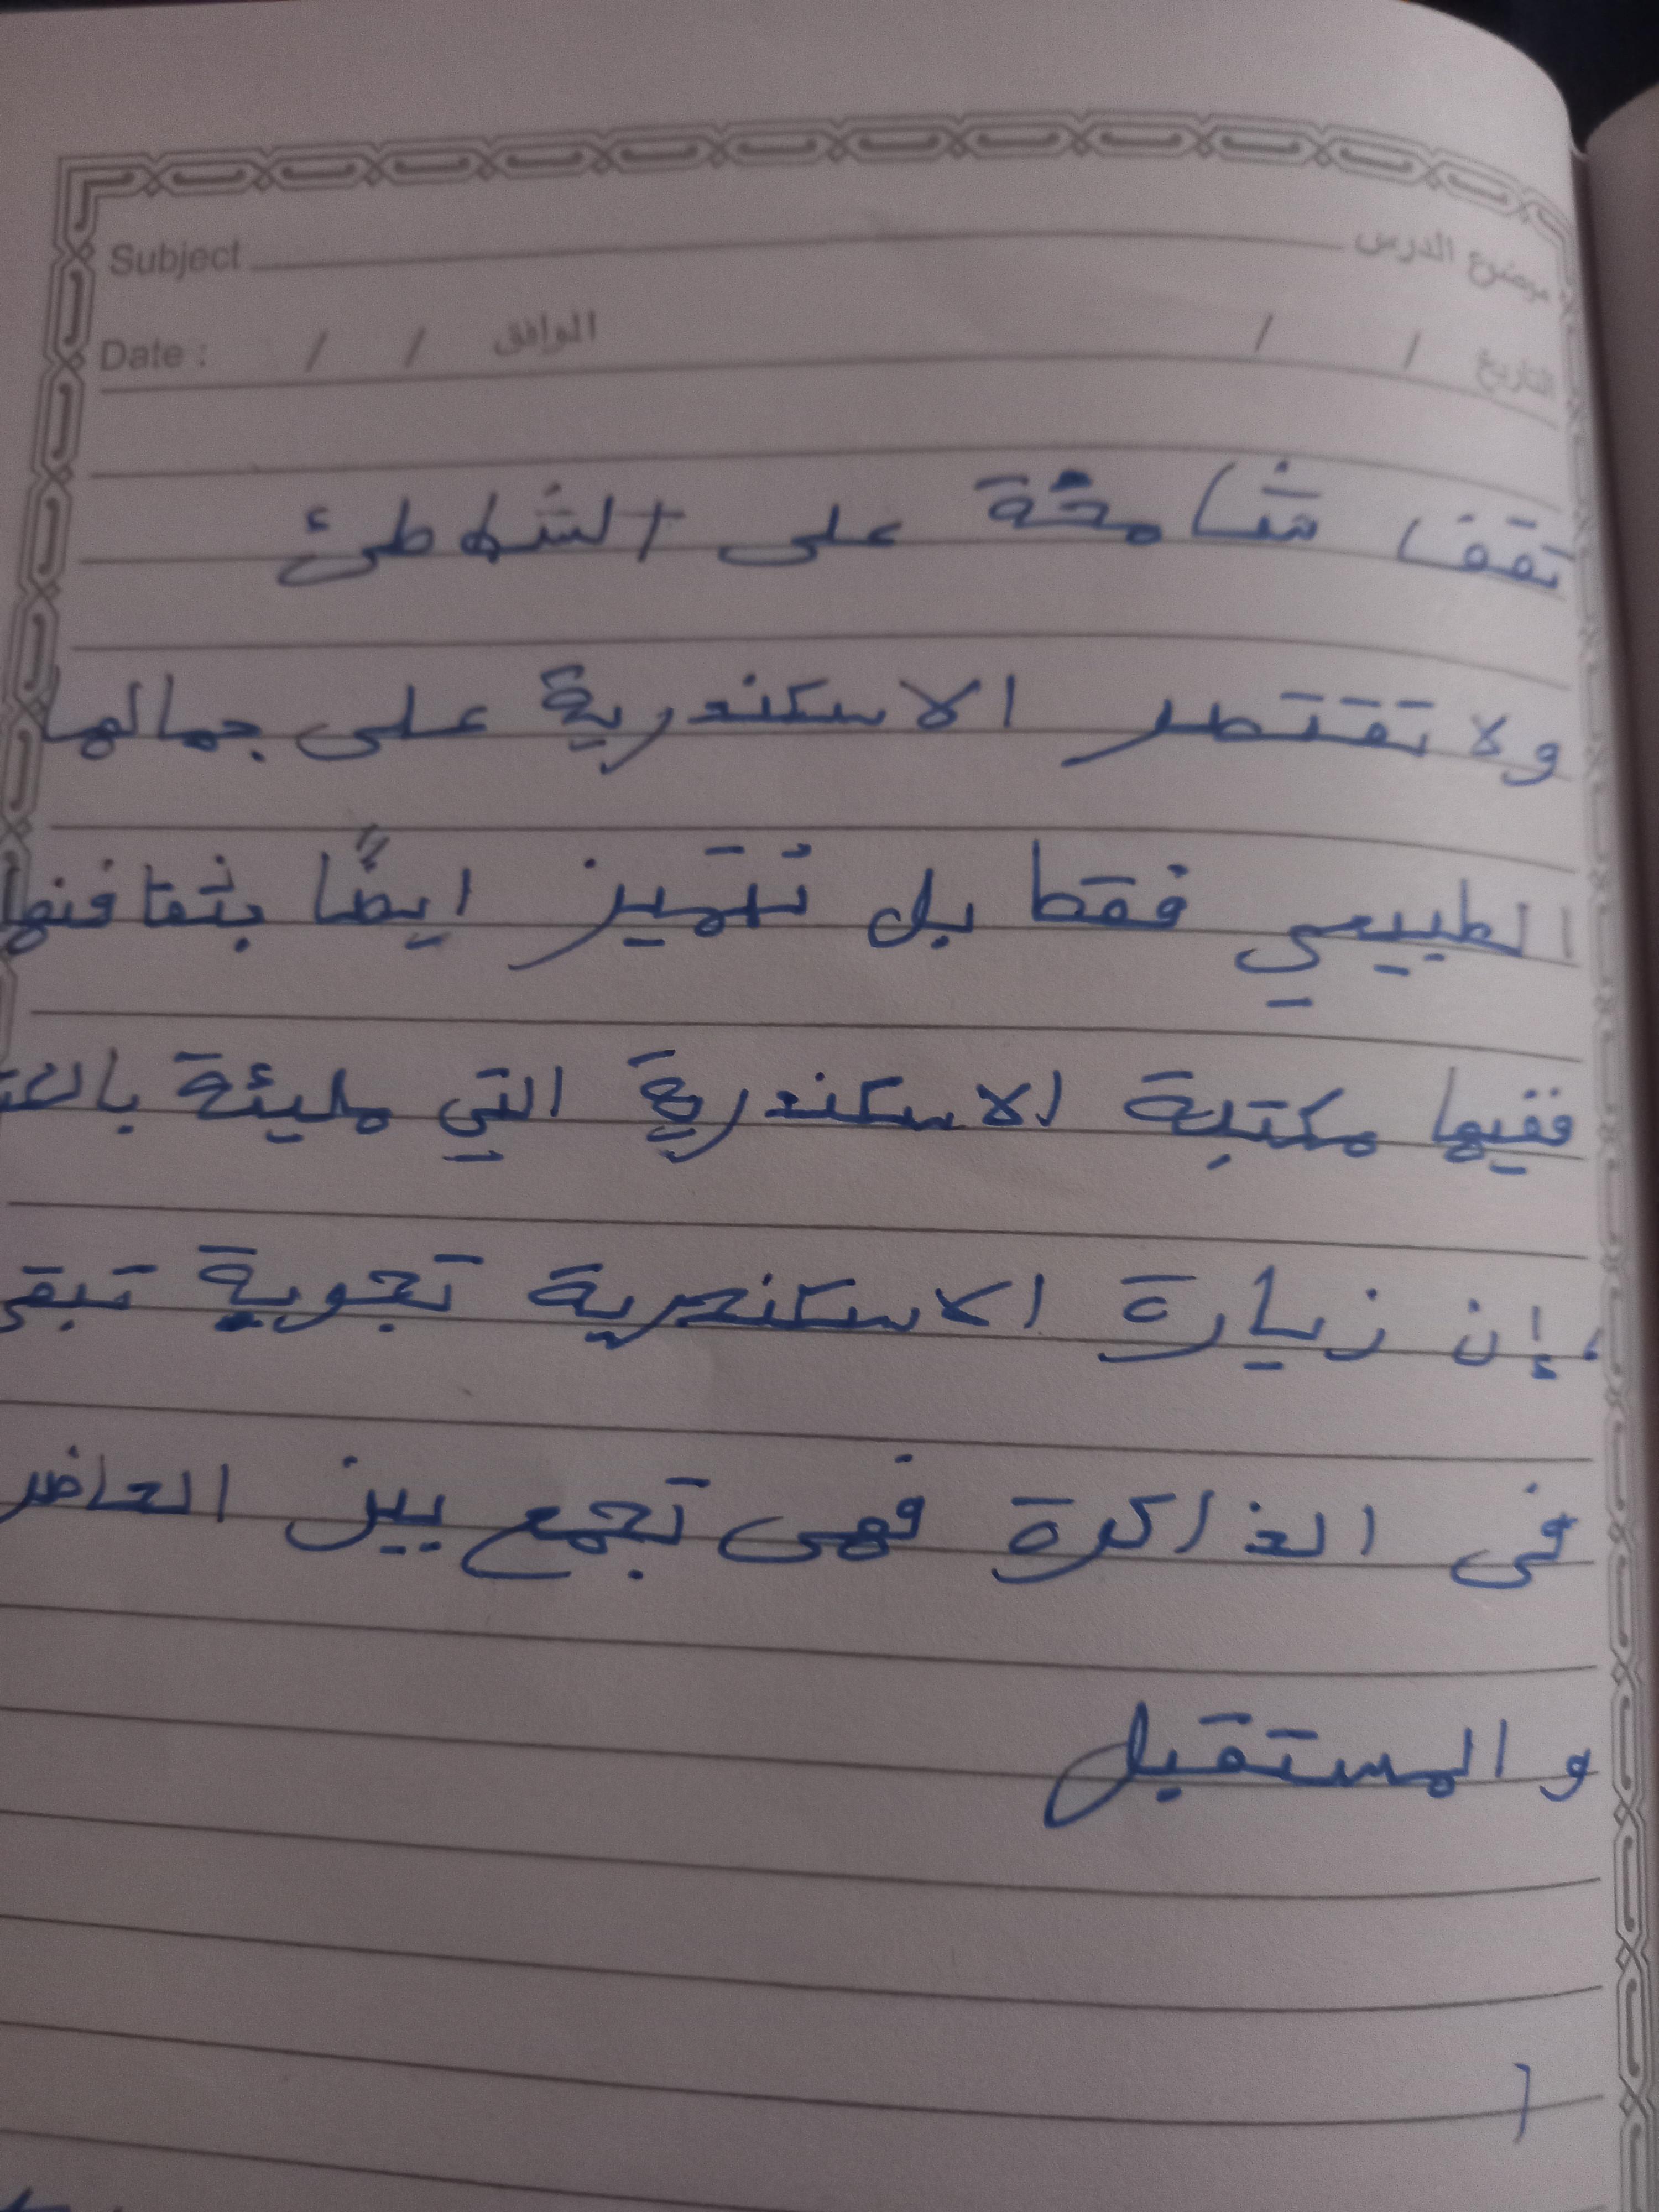 Subject موضوع الدرس
Date : / / الموافق / / التاريخ
تقف شامخة على الشاطئ
ولا تقتصر الاسكندرية على جمالها
الطبيعي فقط بل تتميز ايضًا بثقافتها
ففيها مكتبة الاسكندرية التي مليئة
إن زيارة الاسكندرية تجوبة تبقى
فى الذاكرة فهى تجمع بين الحاضر
والمستقبل